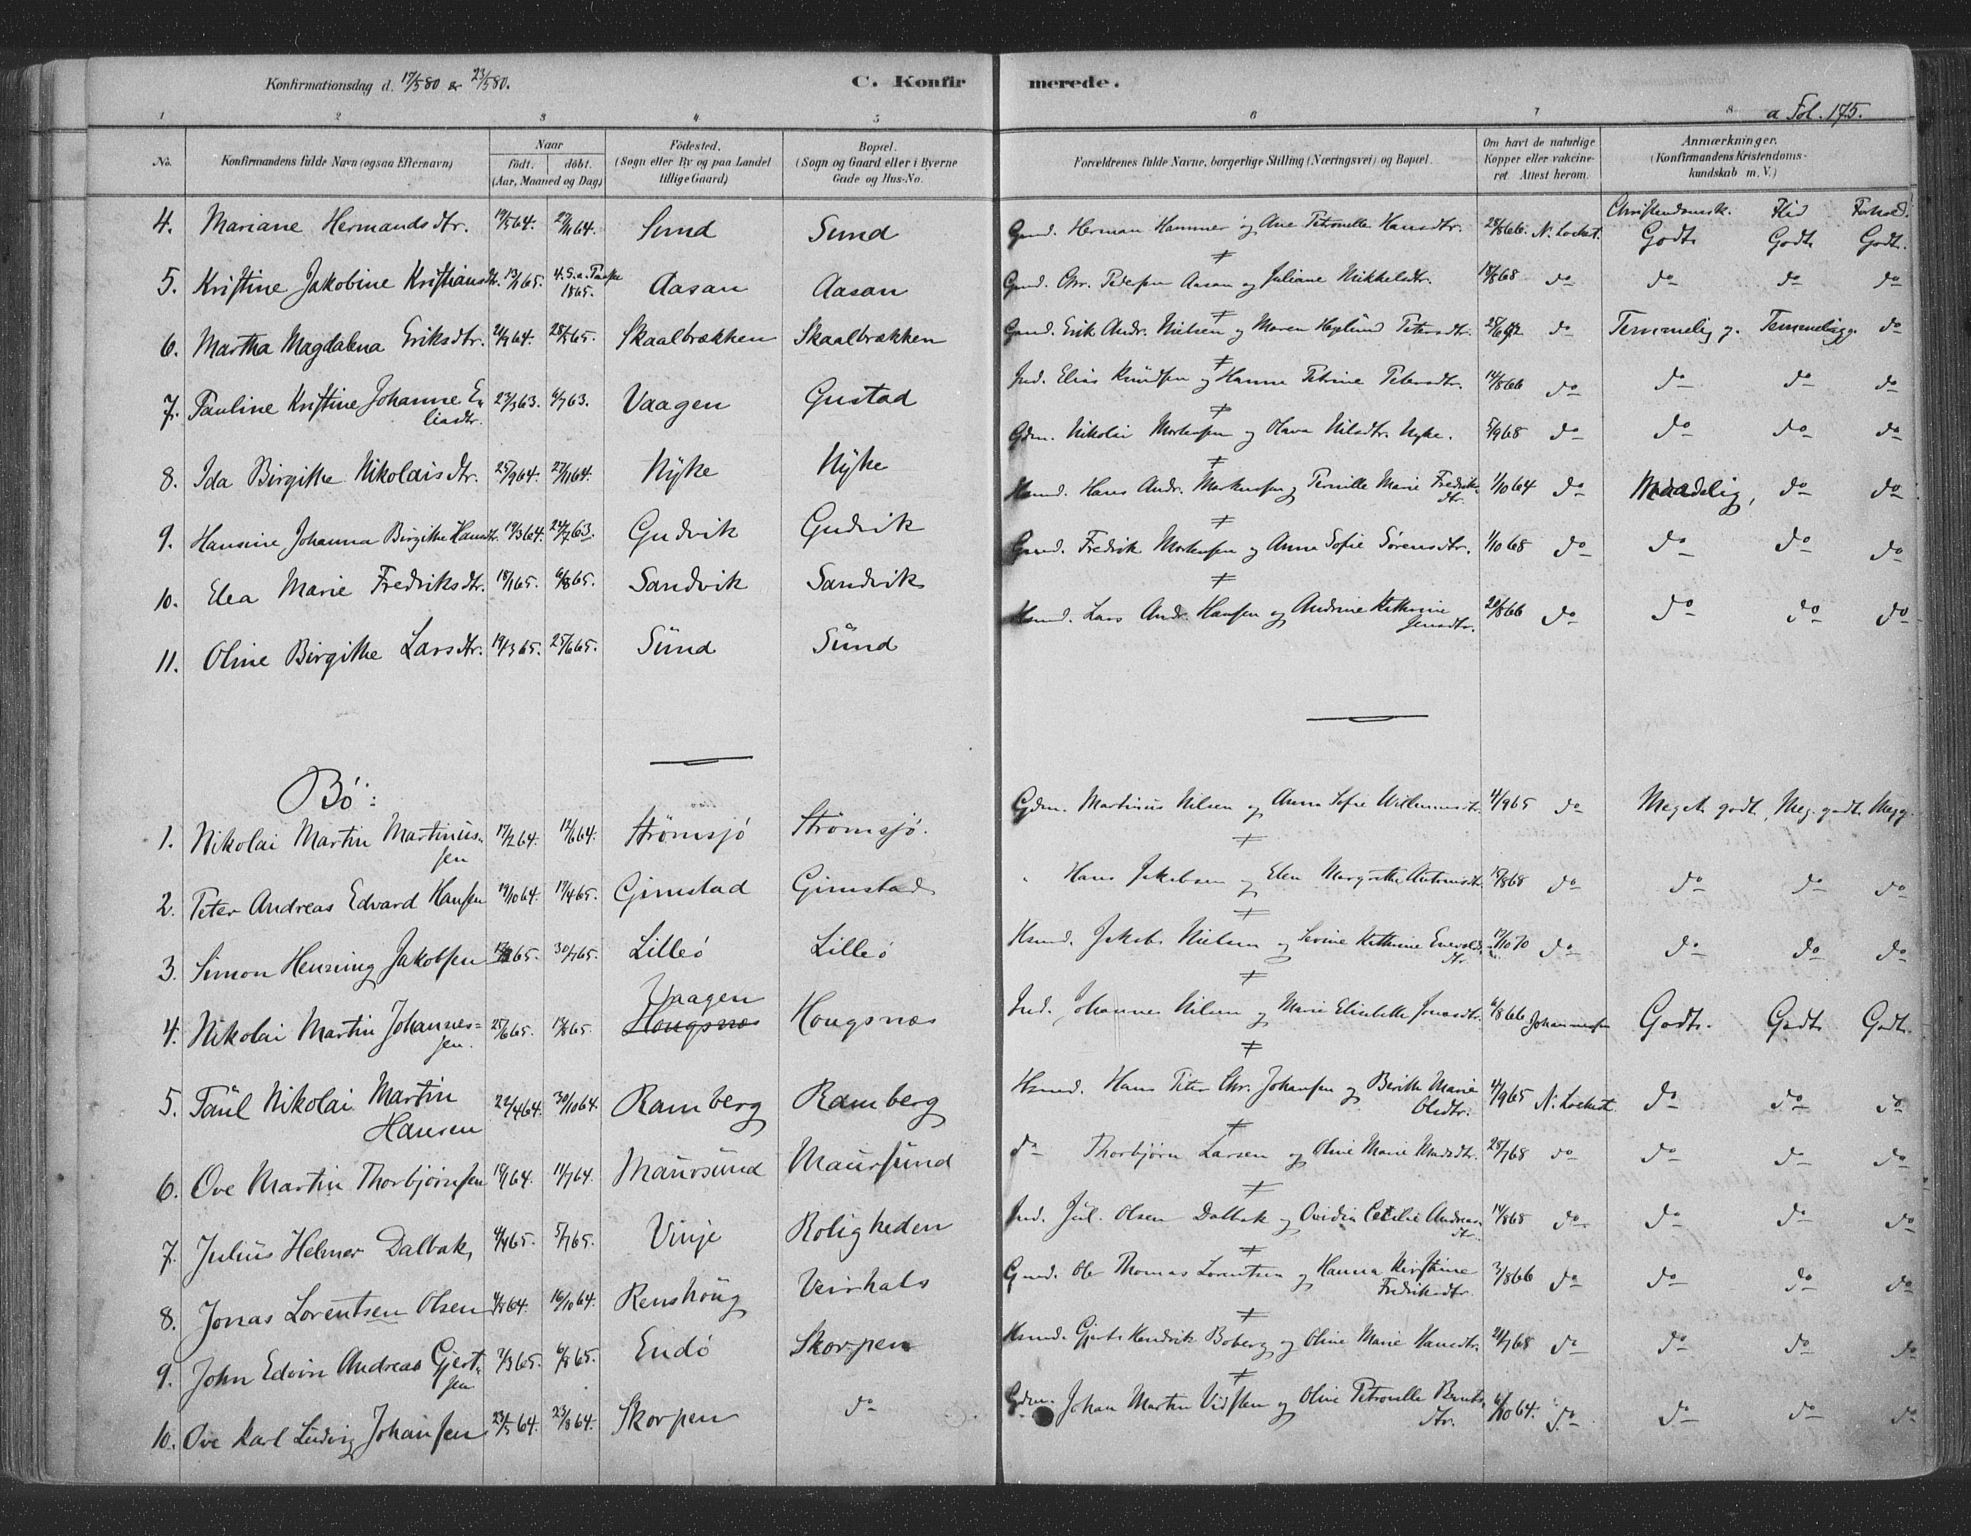 Konfirmationsdag d. 17/5 80 & 23/5 80. C. Konfirmerede. a Fol. 175.
1 2 3 4 5 6 7 8
No. Konfirmandens fulde Navn (ogsaa Efternavn) Naar født. døbt. (Aar, Maaned og Dag) Fødested. (Sogn eller By og paa Landet tillige Gaard) Bopæl. (Sogn og Gaard eller i Byerne Gade og Hus-No. Forældrenes fulde Navne, borgerlige Stilling (Næringsvei) og Bopæl. Om havt de naturlige Kopper eller vakcineret. Attest herom. Anmærkninger. (Konfirmandens Kristendomskundskab m. V.)
Christendomsk. Flid Forhold.
4. Mariane Hermandsdtr. 19/5 64. 27/11 64. Sund Sund Gmd. Herman Hammer og Ane Petronelle Hansdtr. 28/8 66. N. Lockert. Godt Godt Godt.
5. Kristine Jakobine Kristiansdtr. 13/1 65. 4. S. a. Paaske 1865. Aasan Aasan Gmd. Chr. Pedersen Aasan og Juliane Mikkelsdtr. 18/8 68 do do do do
6. Martha Magdalena Eriksdtr. 28/5 65. Skaalbrækken Skaalbrækken Gmd. Erik Andr. Nielsen og Maren Petersdtr. do Temmelig g. Temmelig g. do
7. Pauline Kristine Johanne Eliasdtr. 23/3 63. 6/7 63. Vaagen Gustad Ind. Elias Knudsen og Hanna Petrine Petersdtr. 14/8 66 do do do do
8. Ida Birgitte Nikolaisdtr. 25/9 64. 27/11 64. Nyke Nyke Gdm. Nikolai Mortensen og Olava Nilsdtr. Nyke. 5/9 68 do do do do
9. Hansine Johanna Birgitte Hansdtr. 19/3 64. Gudvik Gudvik Hsmd. Hans Andr. Mortensen og Pernille Marie Fredriksdtr. 1/10 64 do Maadelig, do do
10. Elea Marie Fredriksdtr. 18/1 65. 6/8 65. Sandvik Sandvik Gmd. Fredrik Mortensen og Anne Sofie Sørensdtr. 1/10 68 do do do do
11. Oline Birgitte Larsdtr. 19/3 65. 25/6 65. Sund Sund Hsmd. Lars Andr. Hansen og Andrine Kathrine Jensdtr. 20/8 66 do do do do
Bø:
1. Nikolai Martin Martinussen 17/2 64. 12/6 64. Strømsjö Strømsjö. Gdm. Martinus Nilsen og Anna Sofie Willumsdtr. 4/9 65 do Meget godt, Meg. godt. Meg g.
2. Peter Andreas Edvard Hansen 19/10 64. 17/4 65. Gimstad Gimstad " Hans Jakobsen og Elen Margrethe Antonisdtr. 18/8 68 do do do do
3. Simon Henning Jakobsen 30/7 65. Lilleö Lilleö Hsmd. Jakob Nielsen og Sevine Kathrine Enevoldsdtr. 17/10 70 do do do do
4. Nikolai Martin Johannessen. 25/6 65. 13/8 65. Vaagen Hougsnæs Hougsnæs Ind. Johannes Nilsen og Marie Elisabeth Jonasdtr. 6/8 66 Johannesen Godt. Godt Godt.
5. Paul Nikolai Martin Hansen 22/4 64. 30/10 64. Ramberg Ramberg Hsmd. Hans Peter Chr. Johansen og Berith Marie Olsdtr. 4/9 65 N. Lockert do do do
6. Ove Martin Thorbjørnsen 19/1 64. 11/7 64. Maursund Maursund do Thorbjørn Larsen og Oline Marie Madsdtr. 28/7 68 do do do do
7. Julius Helmer Dalbak, 4/4 65. 5/7 65. Vinje Roligheden Ind. Jul. Olsen Dalbak og Ovidia Cecilie Andreasdtr. 14/8 68 do do do do
8. Jonas Lorentsen Olsen 4/8 64. 16/10 64. Renshöug Veirhals Gmd. Ole Thomas Lorentsen og Hanna Kirstine Fredriksdtr. 3/8 66 do do do do
9. John Edvin Andreas Gjertsen 7/3 65. 6/8 65. Endö Skorpen Hsmd. Gjert Hendrik Boberg og Oline Marie Hansdtr. 21/7 68 do do do do
10. Ove Karl Ludvig Johansen 23/5 64. 23/8 64. Skorpen do Gdm. Johan Martin Vidsten og Oline Petronelle Berntsdtr. 6/10 64. do do do do